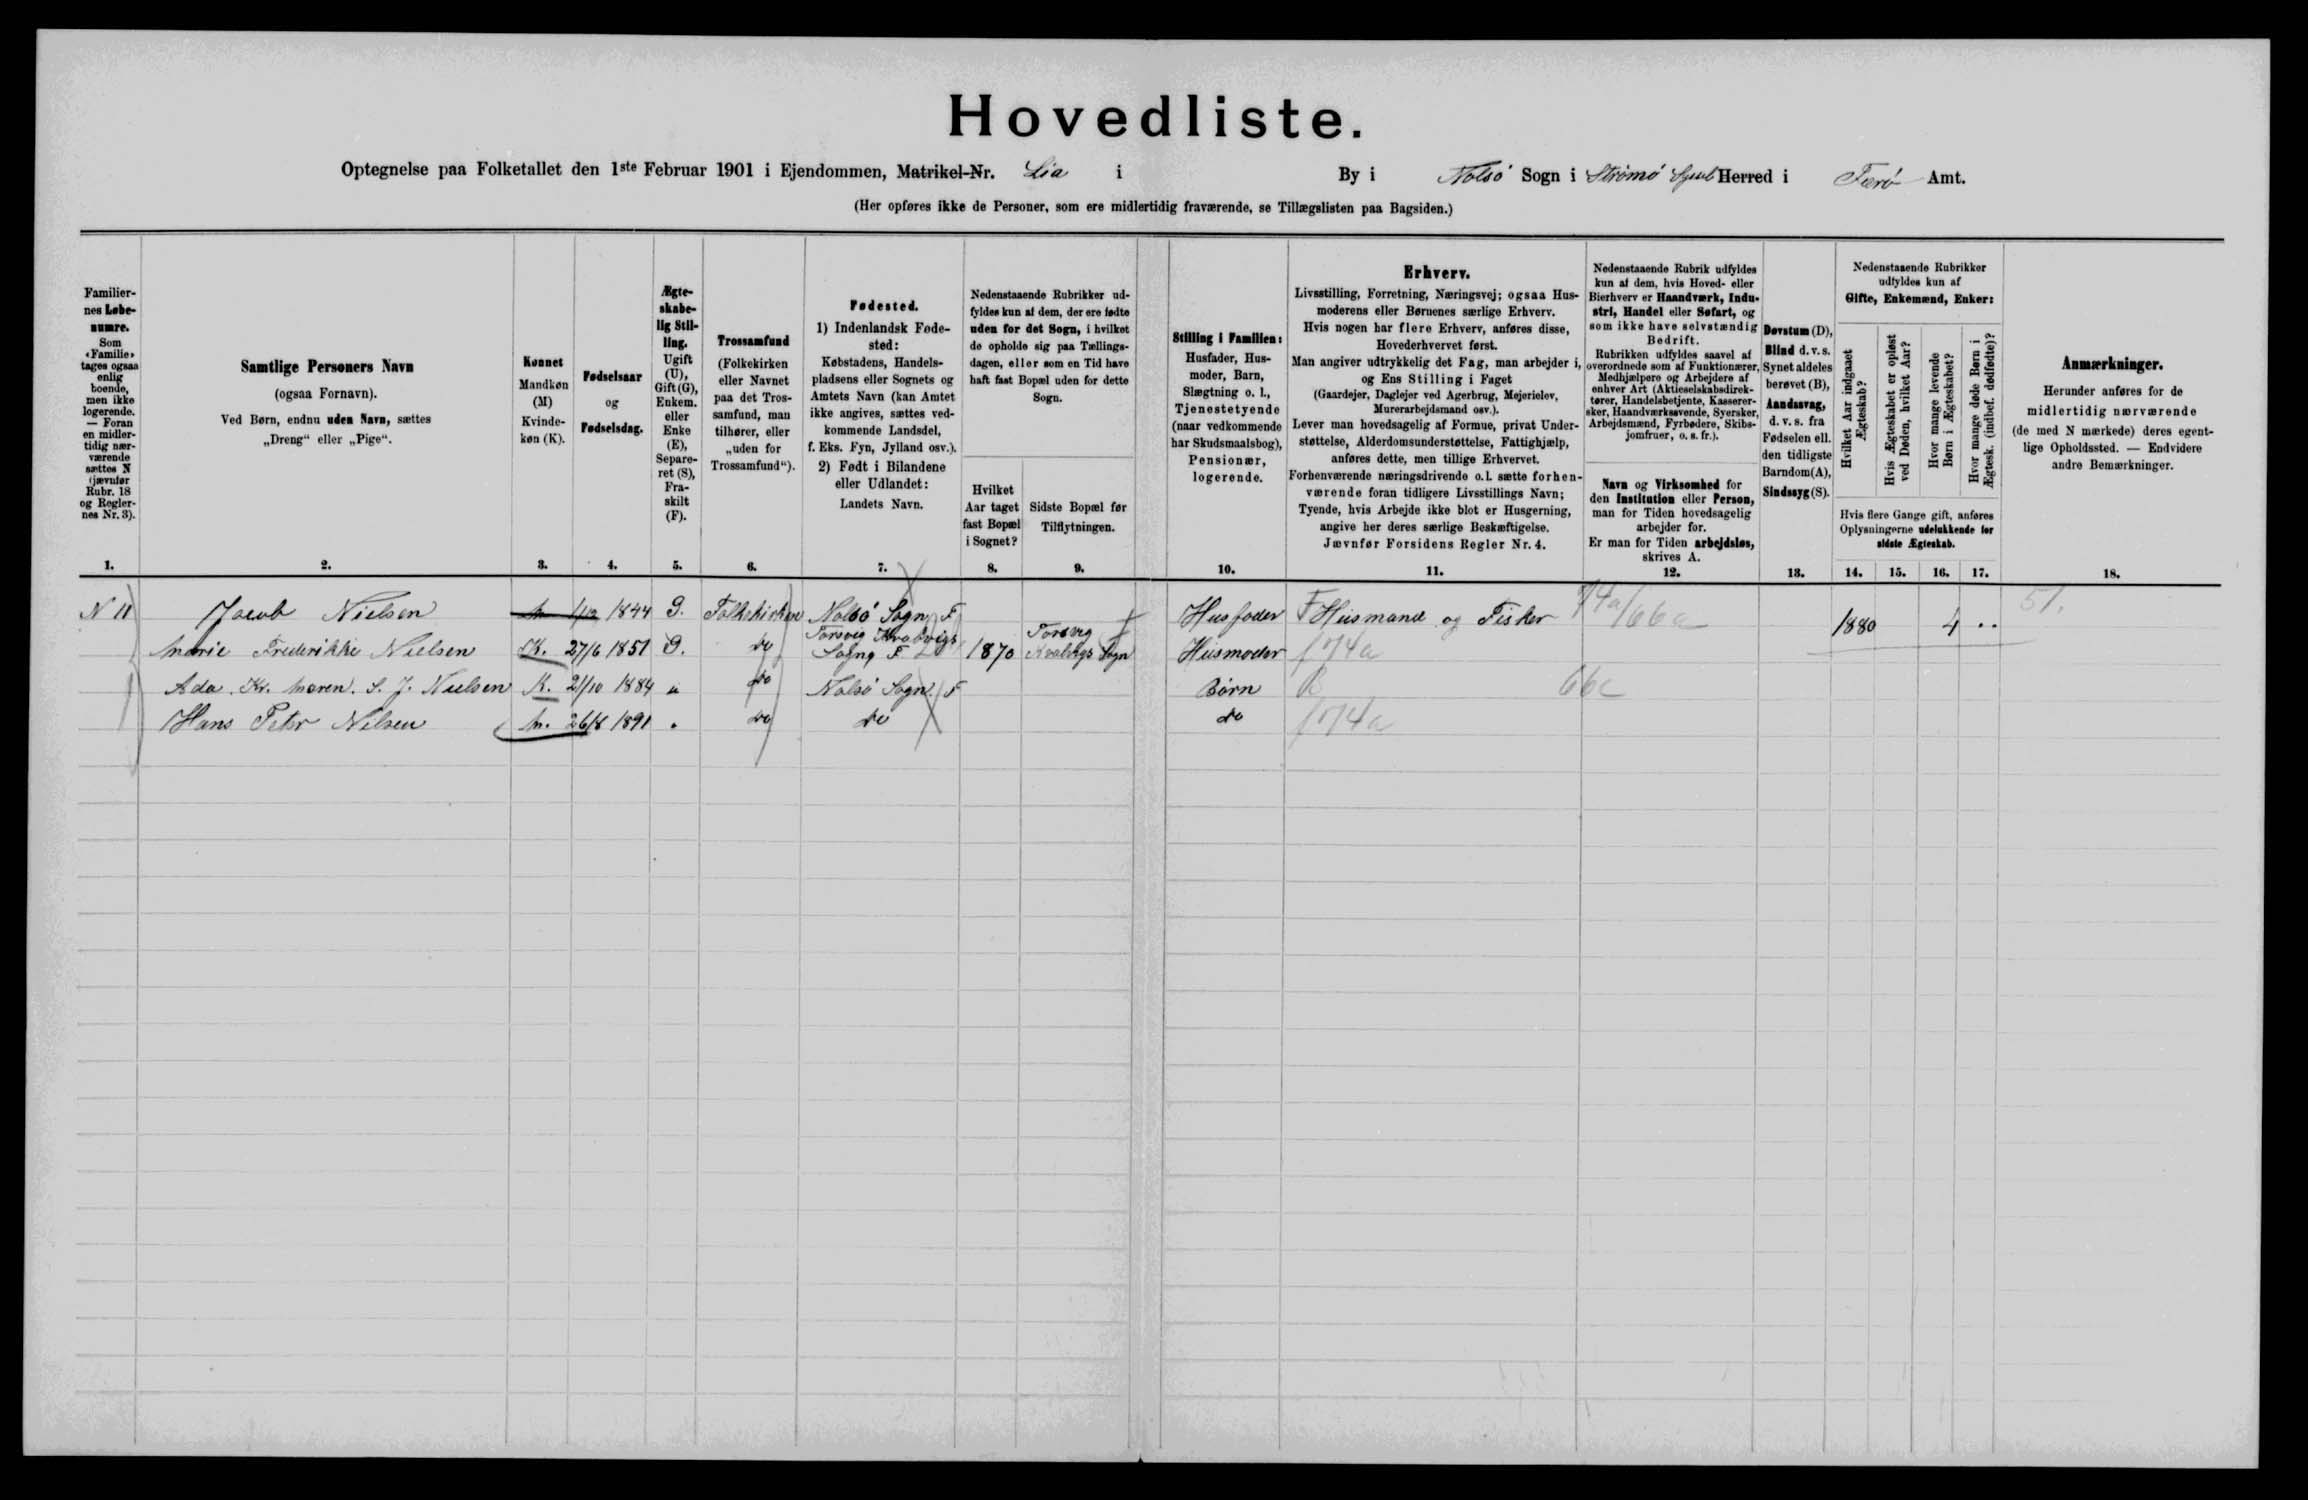 Hovedliste.
Optegnelse paa Folketallet den 1ste Februar 1901 i Ejendommen, Matrikel-Nr. Lia i By i Nolsø Sogn i Strømø Syssel Herred i Færø Amt.
(Her opføres ikke de Personer, som ere midlertidig fraværende, se Tillægslisten paa Bagsiden.)
Familier-
nes Løbe-
numre.
Som
«Familie»
tages ogsaa
enlig
boende,
men ikke
logerende.
— Foran
en midler-
tidig nær-
værende
sættes N
(jævnfør
Rubr. 18
og Regler-
nes Nr. 3).
1.
Samtlige Personers Navn
(ogsaa Fornavn).
Ved Børn, endnu uden Navn, sættes
„Dreng“ eller „Pige“.
2.
Kønnet
Mandkøn
(M)
Kvinde-
køn (K).
3.
Fødselsaar
og
Fødselsdag.
4.
Ægte-
skabe-
lig Stil-
ling.
Ugift
(U),
Gift (G),
Enkem.
eller
Enke
(E),
Separe-
ret (S),
Fra-
skilt
(F).
5.
Trossamfund
(Folkekirken
eller Navnet
paa det Tros-
samfund, man
tilhører, eller
„uden for
Trossamfund“).
6.
Fødested.
1) Indenlandsk Føde-
sted:
Købstadens, Handels-
pladsens eller Sognets og
Amtets Navn (kan Amtet
ikke angives, sættes ved-
kommende Landsdel,
f. Eks. Fyn, Jylland osv.).
2) Født i Bilandene
eller Udlandet:
Landets Navn.
7.
Nedenstaaende Rubrikker ud-
fyldes kun af dem, der ere fødte
uden for det Sogn, i hvilket
de opholde sig paa Tællings-
dagen, eller som en Tid have
haft fast Bopæl uden for dette
Sogn.
Hvilket
Aar taget
fast Bopæl
i Sognet?
8.
Sidste Bopæl før
Tilflytningen.
9.
Stilling i Familien:
Husfader, Hus-
moder, Barn,
Slægtning o. l.,
Tjenestetyende
(naar vedkommende
har Skudsmaalsbog),
Pensionær,
logerende.
10.
Erhverv.
Livsstilling, Forretning, Næringsvej; ogsaa Hus-
moderens eller Børnenes særlige Erhverv.
Hvis nogen har flere Erhverv, anføres disse,
Hovederhvervet først.
Man angiver udtrykkelig det Fag, man arbejder i,
og Ens Stilling i Faget
(Gaardejer, Daglejer ved Agerbrug, Mejerielev,
Murerarbejdsmand osv.).
Lever man hovedsagelig af Formue, privat Under-
støttelse, Alderdomsunderstøttelse, Fattighjælp,
anføres dette, men tillige Erhvervet.
Forhenværende næringsdrivende o. l. sætte forhen-
værende foran tidligere Livsstillings Navn;
Tyende, hvis Arbejde ikke blot er Husgerning,
angive her deres særlige Beskæftigelse.
Jævnfør Forsidens Regler Nr. 4.
11.
Nedenstaaende Rubrik udfyldes
kun af dem, hvis Hoved- eller
Bierhverv er Haandværk, Indu-
stri, Handel eller Søfart, og
som ikke have selvstændig
Bedrift.
Rubrikken udfyldes saavel af
overordnede som af Funktionærer,
Medhjælpere og Arbejdere af
enhver Art (Aktieselskabsdirek-
tører, Handelsbetjente, Kasserer-
sker, Haandværkssvende, Syersker,
Arbejdsmænd, Fyrbødere, Skibs-
jomfruer, o. s. fr.).
Navn og Virksomhed for
den Institution eller Person,
man for Tiden hovedsagelig
arbejder for.
Er man for Tiden arbejdsløs,
skrives A.
12.
Døvstum (D),
Blind d. v. s.
Synet aldeles
berøvet (B),
Aandssvag,
d. v. s. fra
Fødselen ell.
den tidligste
Barndom (A),
Sindssyg (S).
13.
Nedenstaaende Rubrikker
udfyldes kun af
Gifte, Enkemænd, Enker:
Hvilket Aar indgaaet
Ægteskab?
Hvis Ægteskabet er opløst
ved Døden, hvilket Aar?
Hvor mange levende
Børn i Ægteskabet?
Hvor mange døde Børn i
Ægtesk. (indbef. dødfødte)?
Hvis flere Gange gift, anføres
Oplysningerne udelukkende for
sidste Ægteskab.
14. 15. 16. 17.
Anmærkninger.
Herunder anføres for de
midlertidig nærværende
(de med N mærkede) deres egent-
lige Opholdssted. — Endvidere
andre Bemærkninger.
18.
N 11 Jacob Nielsen M 1/12 1844 G. Folkekirken Nolsø Sogn F Husfader F Husmand og Fisker 74a/66a 1880 4 .. 51.
Marie Frederikke Nielsen K. 27/6 1851 G. do Sogn F 1870 Sogn Husmoder f 74a
Ada. Kr. Maren. S. J. Nielsen K. 21/10 1884 u do Nolsø Sogn. F Børn 66c
Hans Peter Nielsen M. 26/8 1891 " do do do f 74a